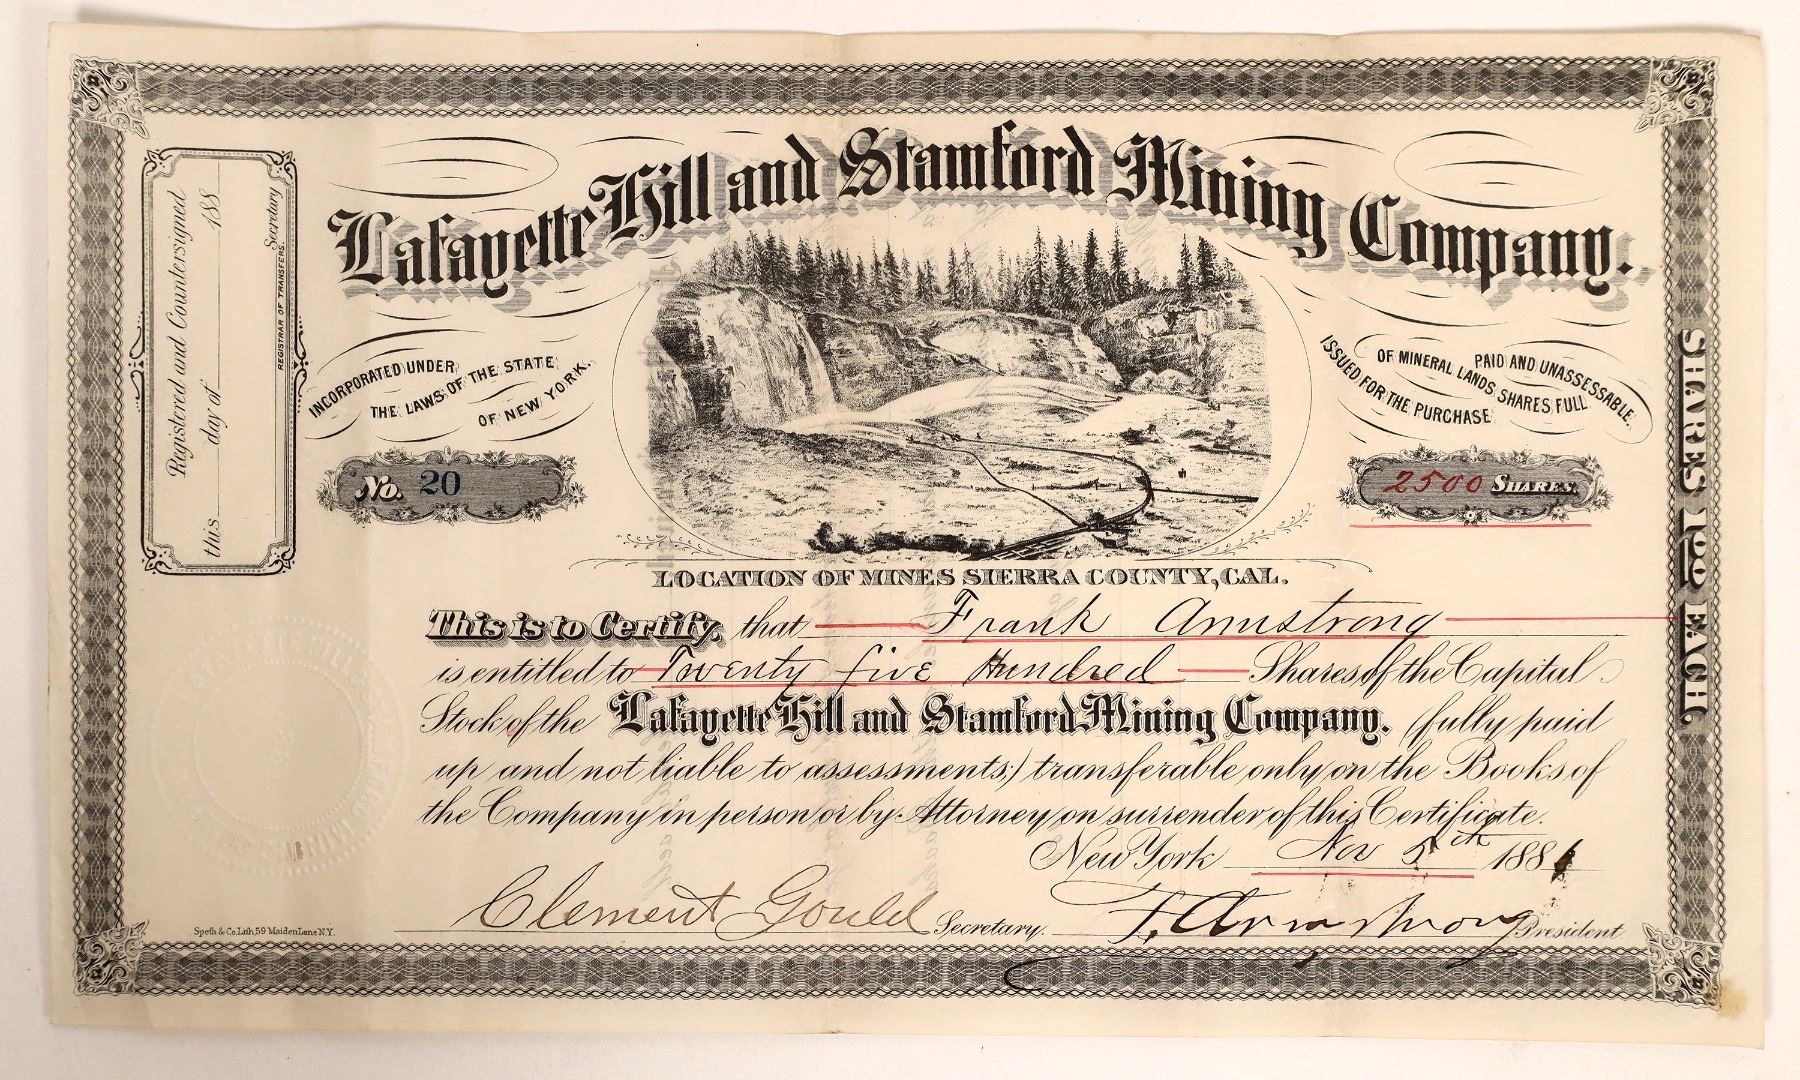 Lafayette Hill and Stamford Mining Company.
Registered and Countersigned
this day of 188
Secretary
REGISTRAR OF TRANSFERS.
INCORPORATED UNDER
THE LAWS OF THE STATE
OF NEW YORK.
ISSUED FOR THE PURCHASE
OF MINERAL LANDS, SHARES FULL
PAID AND UNASSESSABLE.
No. 20
2500 SHARES.
LOCATION OF MINES SIERRA COUNTY, CAL.
This is to Certify, that Frank Armstrong
is entitled to Twenty five Hundred Shares of the Capital
Stock of the Lafayette Hill and Stamford Mining Company. (fully paid
up and not liable to assessments;) transferable only on the Books of
the Company in person or by Attorney on surrender of this Certificate.
New York Nov 5th 1881
Clement Gould Secretary. F. Armstrong President.
Speth & Co. Lith. 59 Maiden Lane N.Y.
SHARES $1.00 EACH